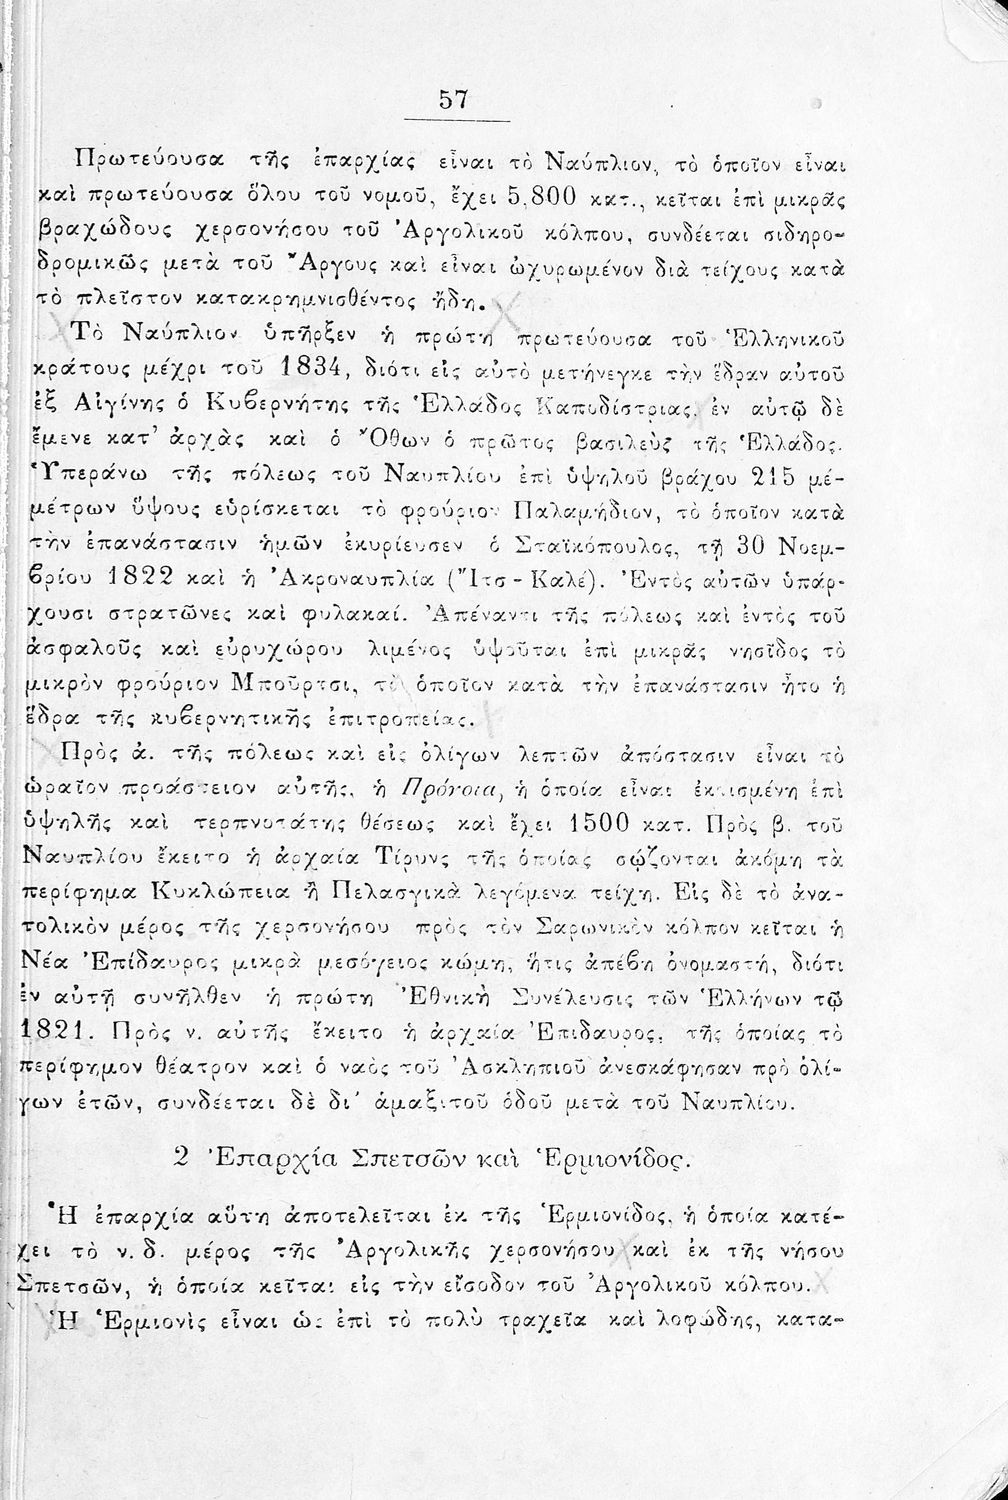 57
Πρωτεύουσα τῆς ἐπαρχίας εἶναι τὸ Ναύπλιον, τὸ ὁποῖον εἶναι
καὶ πρωτεύουσα ὅλου τοῦ νομοῦ, ἔχει 5,800 κατ., κεῖται ἐπὶ μικρᾶς
βραχώδους χερσονήσου τοῦ Ἀργολικοῦ κόλπου, συνδέεται σιδηρο-
δρομικῶς μετὰ τοῦ Ἄργους καὶ εἶναι ὠχυρωμένον διὰ τείχους κατὰ
τὸ πλεῖστον κατακρημνισθέντος ἤδη.
Τὸ Ναύπλιον ὑπῆρξεν ἡ πρώτη πρωτεύουσα τοῦ Ἑλληνικοῦ
κράτους μέχρι τοῦ 1834, διότι εἰς αὐτὸ μετήνεγκε τὴν ἕδραν αὐτοῦ
ἐξ Αἰγίνης ὁ Κυβερνήτης τῆς Ἑλλάδος Καποδίστριας, ἐν αὐτῷ δὲ
ἔμενε κατ' ἀρχὰς καὶ ὁ Ὄθων ὁ πρῶτος βασιλεὺς τῆς Ἑλλάδος.
Ὑπεράνω τῆς πόλεως τοῦ Ναυπλίου ἐπὶ ὑψηλοῦ βράχου 215 μέ-
μέτρων ὕψους εὑρίσκεται τὸ φρούριον Παλαμήδιον, τὸ ὁποῖον κατὰ
τὴν ἐπανάστασιν ἡμῶν ἐκυρίευσεν ὁ Σταϊκόπουλος, τῇ 30 Νοεμ-
βρίου 1822 καὶ ἡ Ἀκροναυπλία (Ἲτσ - Καλέ). Ἐντὸς αὐτῶν ὑπάρ-
χουσι στρατῶνες καὶ φυλακαί. Ἀπέναντι τῆς πόλεως καὶ ἐντὸς τοῦ
ἀσφαλοῦς καὶ εὐρυχώρου λιμένος ὑψοῦται ἐπὶ μικρᾶς νησῖδος τὸ
μικρὸν φρούριον Μποῦρτσι, τὸ ὁποῖον κατὰ τὴν ἐπανάστασιν ἦτο ἡ
ἕδρα τῆς κυβερνητικῆς ἐπιτροπείας.
Πρὸς ἀ. τῆς πόλεως καὶ εἰς ὀλίγων λεπτῶν ἀπόστασιν εἶναι τὸ
ὡραῖον προάστειον αὐτῆς, ἡ Πρόνοια, ἡ ὁποία εἶναι ἐκτισμένη ἐπὶ
ὑψηλῆς καὶ τερπνοτάτης θέσεως καὶ ἔχει 1500 κατ. Πρὸς β. τοῦ
Ναυπλίου ἔκειτο ἡ ἀρχαία Τίρυνς τῆς ὁποίας σῴζονται ἀκόμη τὰ
περίφημα Κυκλώπεια ἢ Πελασγικὰ λεγόμενα τείχη. Εἰς δὲ τὸ ἀνα-
τολικὸν μέρος τῆς χερσονήσου πρὸς τὸν Σαρωνικὸν κόλπον κεῖται ἡ
Νέα Ἐπίδαυρος μικρὰ μεσόγειος κώμη, ἥτις ἀπέβη ὀνομαστή, διότι
ἐν αὐτῇ συνῆλθεν ἡ πρώτη Ἐθνικὴ Συνέλευσις τῶν Ἑλλήνων τῷ
1821. Πρὸς ν. αὐτῆς ἔκειτο ἡ ἀρχαία Ἐπιδαυρος, τῆς ὁποίας τὸ
περίφημον θέατρον καὶ ὁ ναὸς τοῦ Ἀσκληπιοῦ ἀνεσκάφησαν πρὸ ὀλί-
γων ἐτῶν, συνδέεται δὲ δι' ἁμαξιτοῦ ὁδοῦ μετὰ τοῦ Ναυπλίου.
2 Ἐπαρχία Σπετσῶν καὶ Ἑρμιονίδος.
Ἡ ἐπαρχία αὕτη ἀποτελεῖται ἐκ τῆς Ἑρμιονίδος, ἡ ὁποία κατέ-
χει τὸ ν. δ. μέρος τῆς Ἀργολικῆς χερσονήσου καὶ ἐκ τῆς νήσου
Σπετσῶν, ἡ ὁποία κεῖται εἰς τὴν εἴσοδον τοῦ Ἀργολικοῦ κόλπου.
Ἡ Ἑρμιονὶς εἶναι ὡς ἐπὶ τὸ πολὺ τραχεῖα καὶ λοφώδης, κατα-